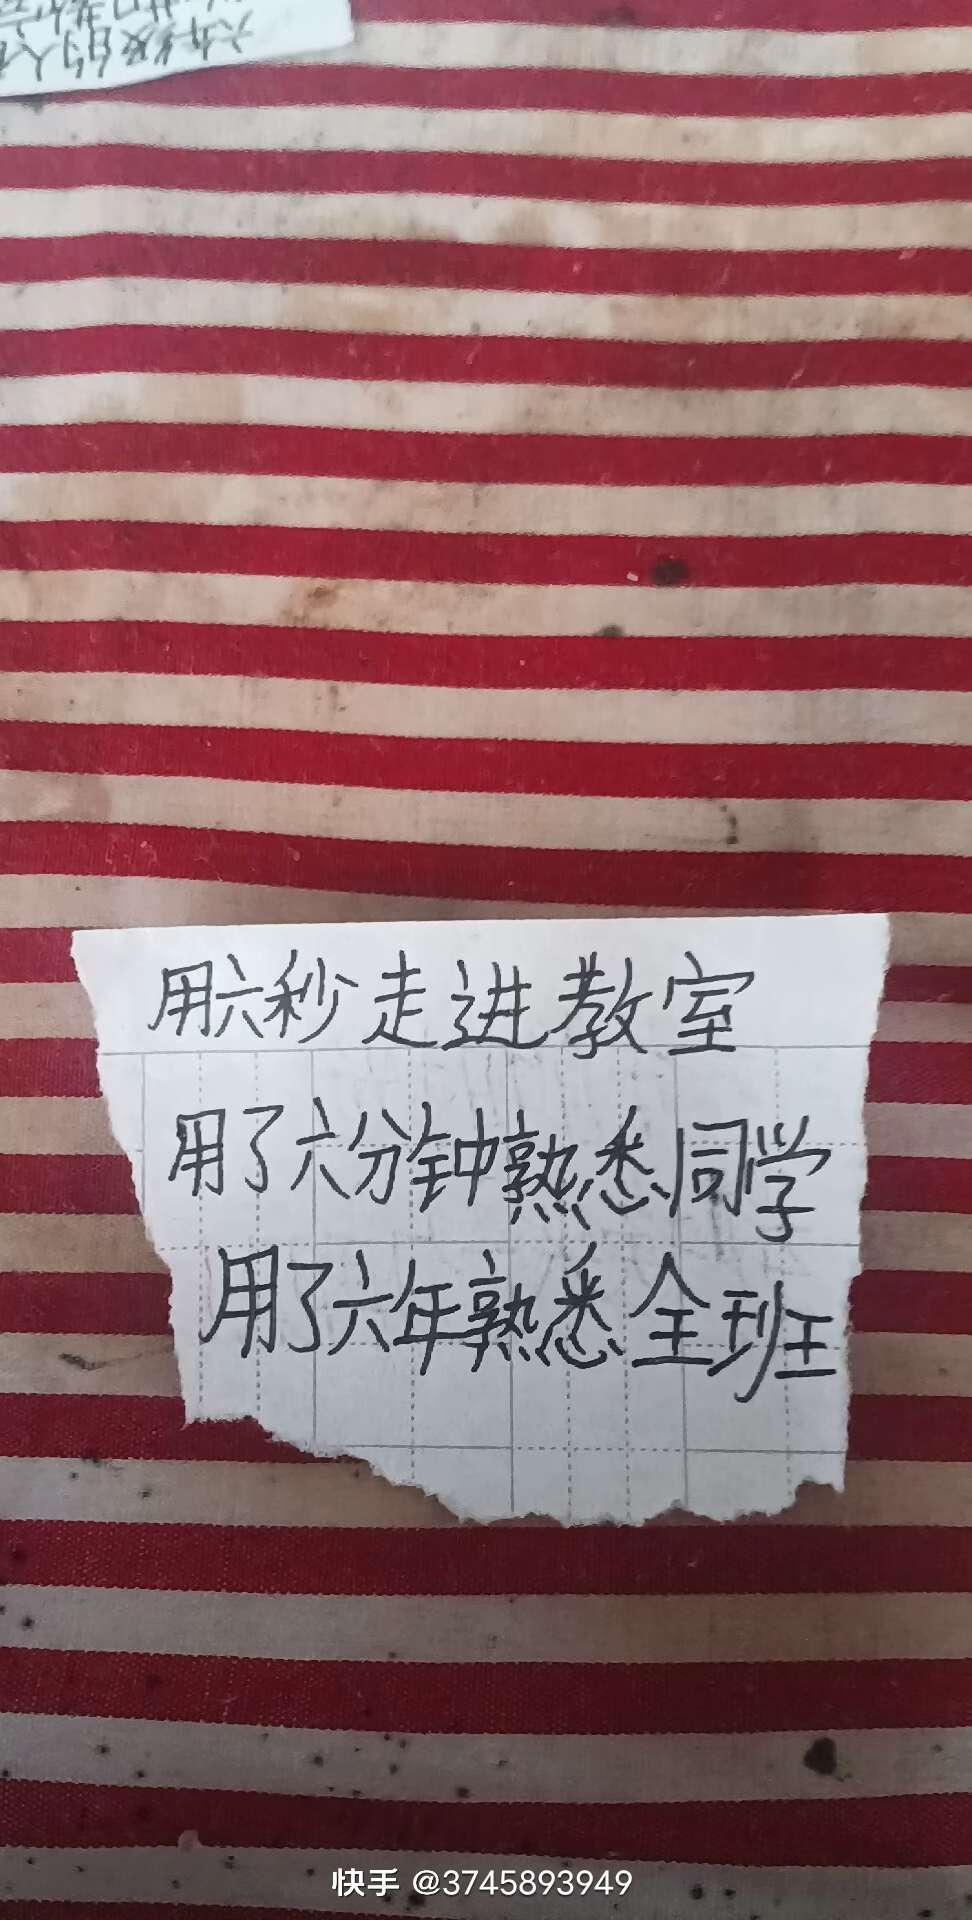 六年级的人
用六秒走进教室
用了六分钟熟悉同学
用了六年熟悉全班
快手 @3745893949